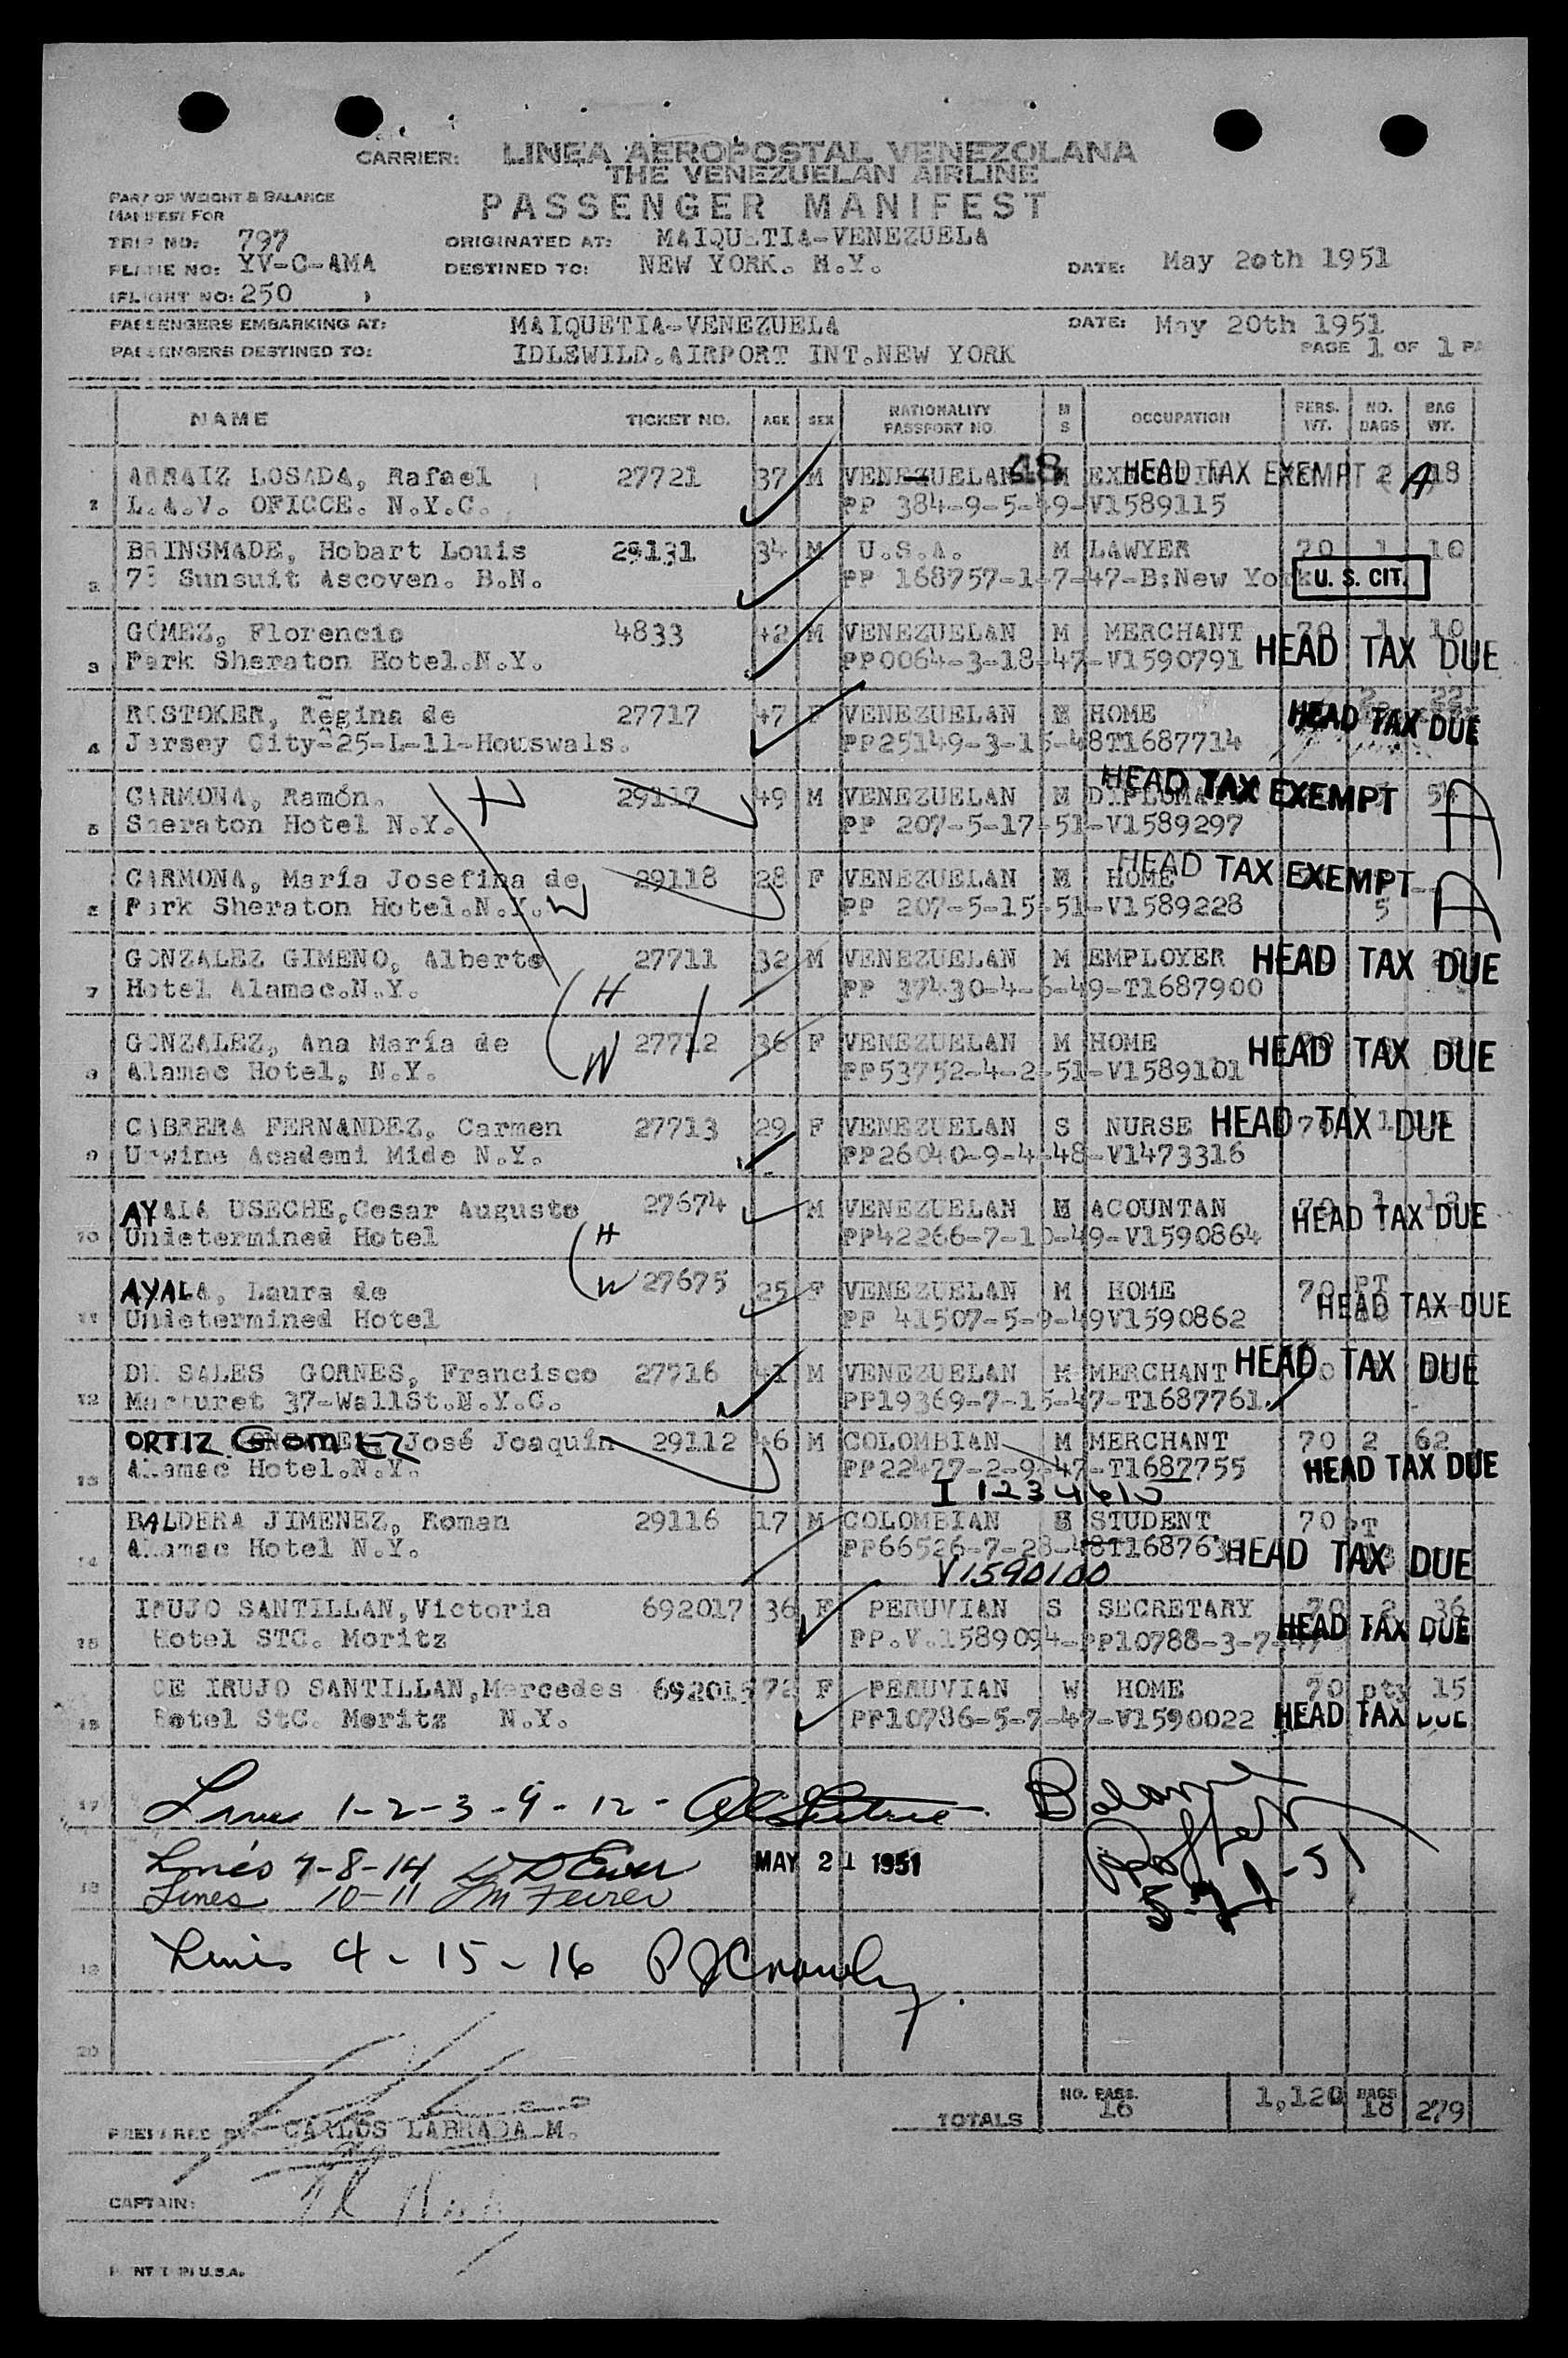 CARRIER: LINEA AEROPOSTAL VENEZOLANA
THE VENEZUELAN AIRLINE
PART OF WEIGHT & BALANCE
MANIFEST FOR
PASSENGER MANIFEST
TRIP NO: 797 ORIGINATED AT: MAIQUETIA-VENEZUELA
PLANE NO: YV-C-AMA DESTINED TO: NEW YORK. N.Y. DATE: May 20th 1951
(FLIGHT NO: 250 )
PASSENGERS EMBARKING AT: MAIQUETIA-VENEZUELA DATE: May 20th 1951
PASSENGERS DESTINED TO: IDLEWILD.AIRPORT INT.NEW YORK PAGE 1 OF 1 PA
NAME TICKET NO. AGE SEX NATIONALITY PASSPORT NO. M S OCCUPATION PERS. WT. NO. BAGS BAG WT.
ARRAIZ LOSADA, Rafael 27721 37 M VENEZUELAN 48 M HEAD TAX EXEMPT 2 A 18
L.A.V. OFICCE. N.Y.C. PP 384-9-5-49-V1589115
BRINSMADE, Hobart Louis 29131 34 M U.S.A. M LAWYER 70 1 10
2 Sunsuit Ascoven. B.N. PP 168757-1-7-47-B:New York U. S. CIT.
GOMEZ, Florencio 4833 42 M VENEZUELAN M MERCHANT 70 1 10
3 Park Sheraton Hotel.N.Y. PP0064-3-18-47-V1590791 HEAD TAX DUE
ROSTOKER, Regina de 27717 47 F VENEZUELAN M HOME 2 22
4 Jersey City-25-L-11-Houswals. PP25149-3-15-48T1687714 HEAD TAX DUE
CARMONA, Ramón. H 29117 49 M VENEZUELAN M HEAD TAX EXEMPT A
5 Sheraton Hotel N.Y. PP 207-5-17-51-V1589297
CARMONA, María Josefina de 29118 28 F VENEZUELAN M HOME HEAD TAX EXEMPT A
6 Park Sheraton Hotel.N.Y. W PP 207-5-15-51-V1589228 5
GONZALEZ GIMENO, Alberto 27711 32 M VENEZUELAN M EMPLOYER HEAD TAX DUE
7 Hotel Alamac.N.Y. H PP 37430-4-6-49-T1687900
GONZALEZ, Ana María de 27712 36 F VENEZUELAN M HOME HEAD TAX DUE
8 Alamac Hotel, N.Y. W PP53752-4-2-51-V1589101
CABRERA FERNANDEZ, Carmen 27713 29 F VENEZUELAN S NURSE 70 1 HEAD TAX DUE
9 Urwine Academi Mide N.Y. PP26040-9-4-48-V1473316
AYALA USECHE,Cesar Augusto 27674 M VENEZUELAN M ACOUNTAN 70 1
10 Undetermined Hotel H PP42266-7-10-49-V1590864 HEAD TAX DUE
AYALA, Laura de W 27675 25 F VENEZUELAN M HOME 70 PT
11 Undetermined Hotel PP 41507-5-9-49V1590862 HEAD TAX DUE
DE SALES GORNES, Francisco 27716 41 M VENEZUELAN M MERCHANT HEAD TAX DUE
12 Marturet 37-WallSt.N.Y.C. PP19369-7-15-47-T1687761
ORTIZ GOMEZ José Joaquín 29112 46 M COLOMBIAN M MERCHANT 70 2 62
13 Alamac Hotel.N.Y. PP22477-2-9-47-T1687755 HEAD TAX DUE
I 1234610
BALDERA JIMENEZ, Roman 29116 17 M COLOMBIAN S STUDENT 70 PT
14 Alamac Hotel N.Y. PP66526-7-28-48T168763 HEAD TAX DUE
V1590100
IRUJO SANTILLAN,Victoria 692017 36 F PERUVIAN S SECRETARY 70 2 36
15 Hotel STC. Moritz PP.V.1589094-PP10788-3-7-47 HEAD TAX DUE
DE IRUJO SANTILLAN,Mercedes 692015 72 F PERUVIAN W HOME 70 pty 15
16 Hotel StC. Moritz N.Y. PP10786-5-7-47-V1590022 HEAD TAX DUE
17 Lines 1-2-3-9-12- Balance
Lines 7-8-14 MAY 21 1951 5-21-51
18 Lines 10-11
19 Lines 4-15-16 PJCrowley
20
TOTALS NO. PASS. 16 1,120 BAGS 18 279
PREPARED BY: CARLOS LABRADA M.
CAPTAIN:
PRINTED IN U.S.A.